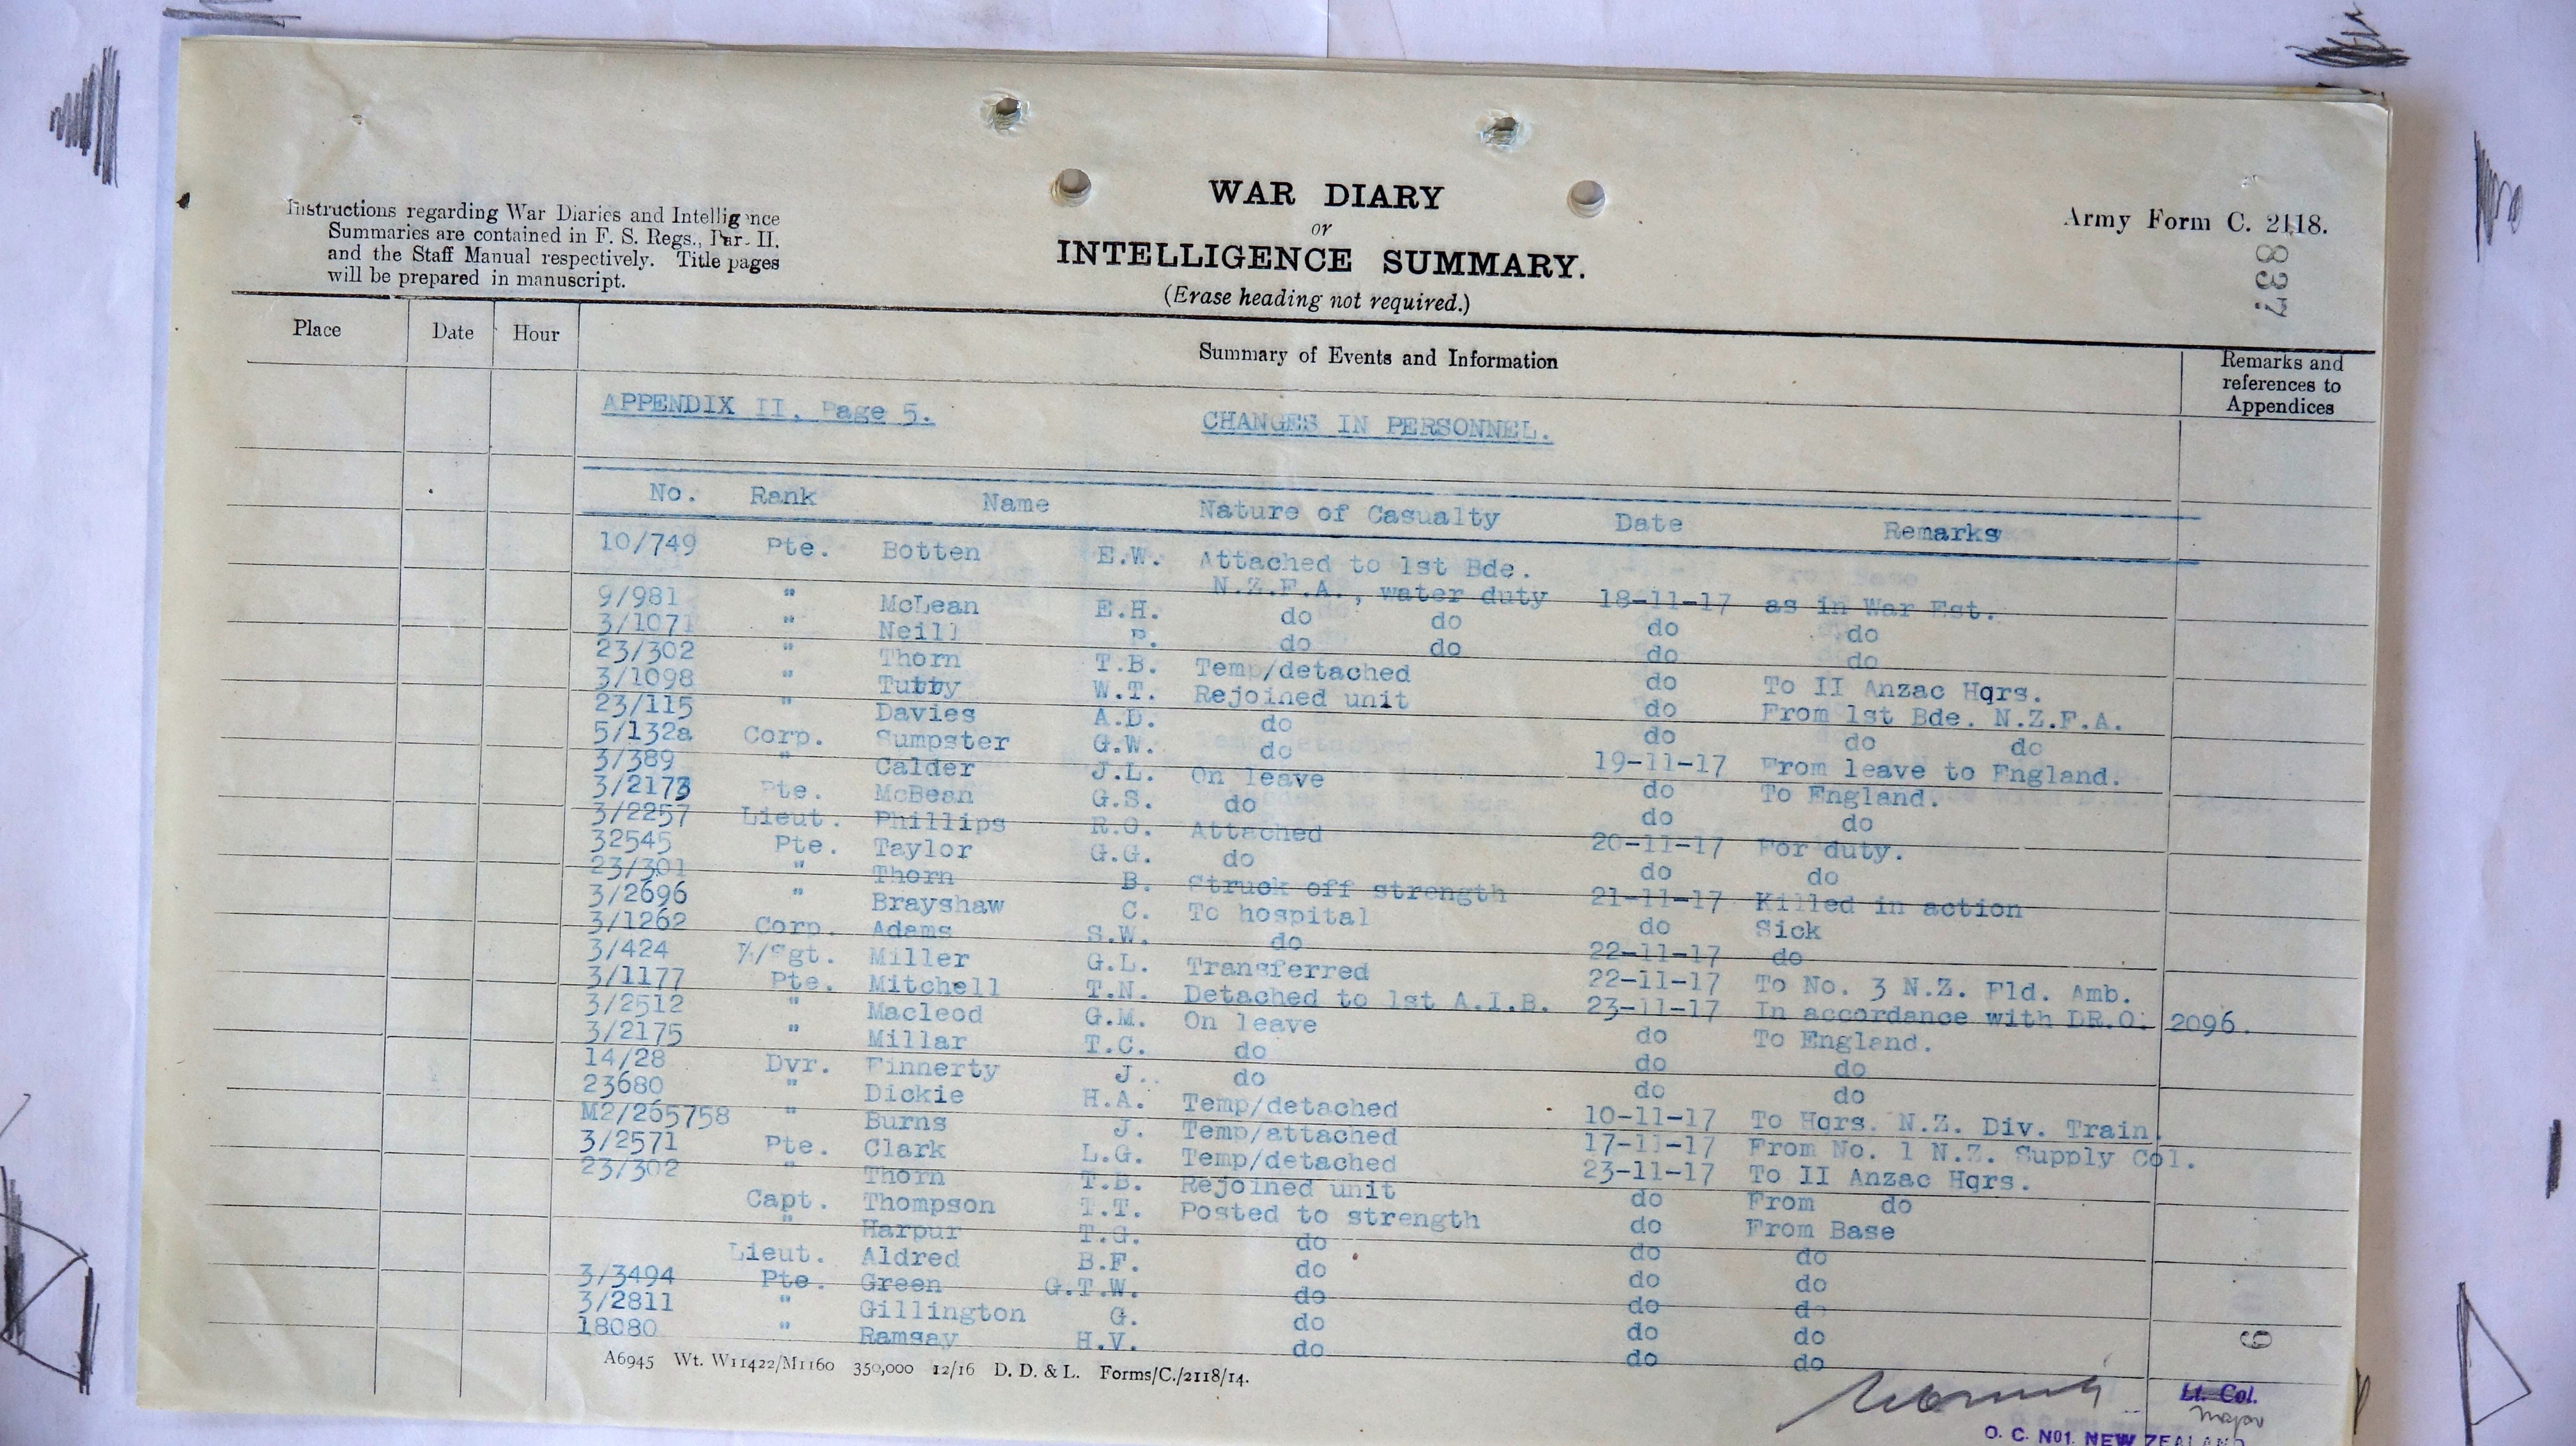 Instructions regarding War Diaries and Intelligence
Summaries are contained in F. S. Regs., Par. II.
and the Staff Manual respectively. Title pages
will be prepared in manuscript.
WAR DIARY
or
INTELLIGENCE SUMMARY.
(Erase heading not required.)
Army Form C. 2118.
837
Place Date Hour Summary of Events and Information Remarks and
references to
Appendices
APPENDIX II, Page 5. CHANGES IN PERSONNEL.
No. Rank Name Nature of Casualty Date Remarks
10/749 Pte. Botten E.W. Attached to 1st Bde.
N.Z.F.A., water duty 18-11-17 as in War Est.
9/981 " McLean E.H. do do do do
3/1071 " Neill do do do do
23/302 " Thorn T.B. Temp/detached do To II Anzac Hqrs.
3/1098 " Tutty W.T. Rejoined unit do From 1st Bde. N.Z.F.A.
23/115 " Davies A.D. do do do do
5/132a Corp. Sumpster G.W. do 19-11-17 From leave to England.
3/389 " Calder J.L. On leave do To England.
3/2173 Pte. McBean G.S. do do do
3/2257 Lieut. Phillips R.O. Attached 20-11-17 For duty.
32545 Pte. Taylor G.G. do do do
23/301 " Thorn B. Struck off strength 21-11-17 Killed in action
3/2696 " Brayshaw C. To hospital do Sick
3/1262 Corp. Adams S.W. do 22-11-17 do
3/424 T/Sgt. Miller G.L. Transferred 22-11-17 To No. 3 N.Z. Fld. Amb.
3/1177 Pte. Mitchell T.N. Detached to 1st A.I.B. 23-11-17 In accordance with DR.O. 2096.
3/2512 " Macleod G.M. On leave do To England.
3/2175 " Millar T.C. do do do
14/28 Dvr. Finnerty J. do do do
23680 " Dickie H.A. Temp/detached 10-11-17 To Hqrs. N.Z. Div. Train.
M2/265758 " Burns J. Temp/attached 17-11-17 From No. 1 N.Z. Supply Col.
3/2571 Pte. Clark L.G. Temp/detached 23-11-17 To II Anzac Hqrs.
23/302 " Thorn T.B. Rejoined unit do From do
Capt. Thompson T.T. Posted to strength do From Base
" Harpur T.G. do do do
Lieut. Aldred B.F. do do do
3/3494 Pte. Green G.T.W. do do do
3/2811 " Gillington G. do do do
18080 " Ramsay H.V. do do do
A6945 Wt. W11422/M1160 350,000 12/16 D. D. & L. Forms/C./2118/14.
6
Lt. Col.
Major
O. C. No1. NEW ZEALAND